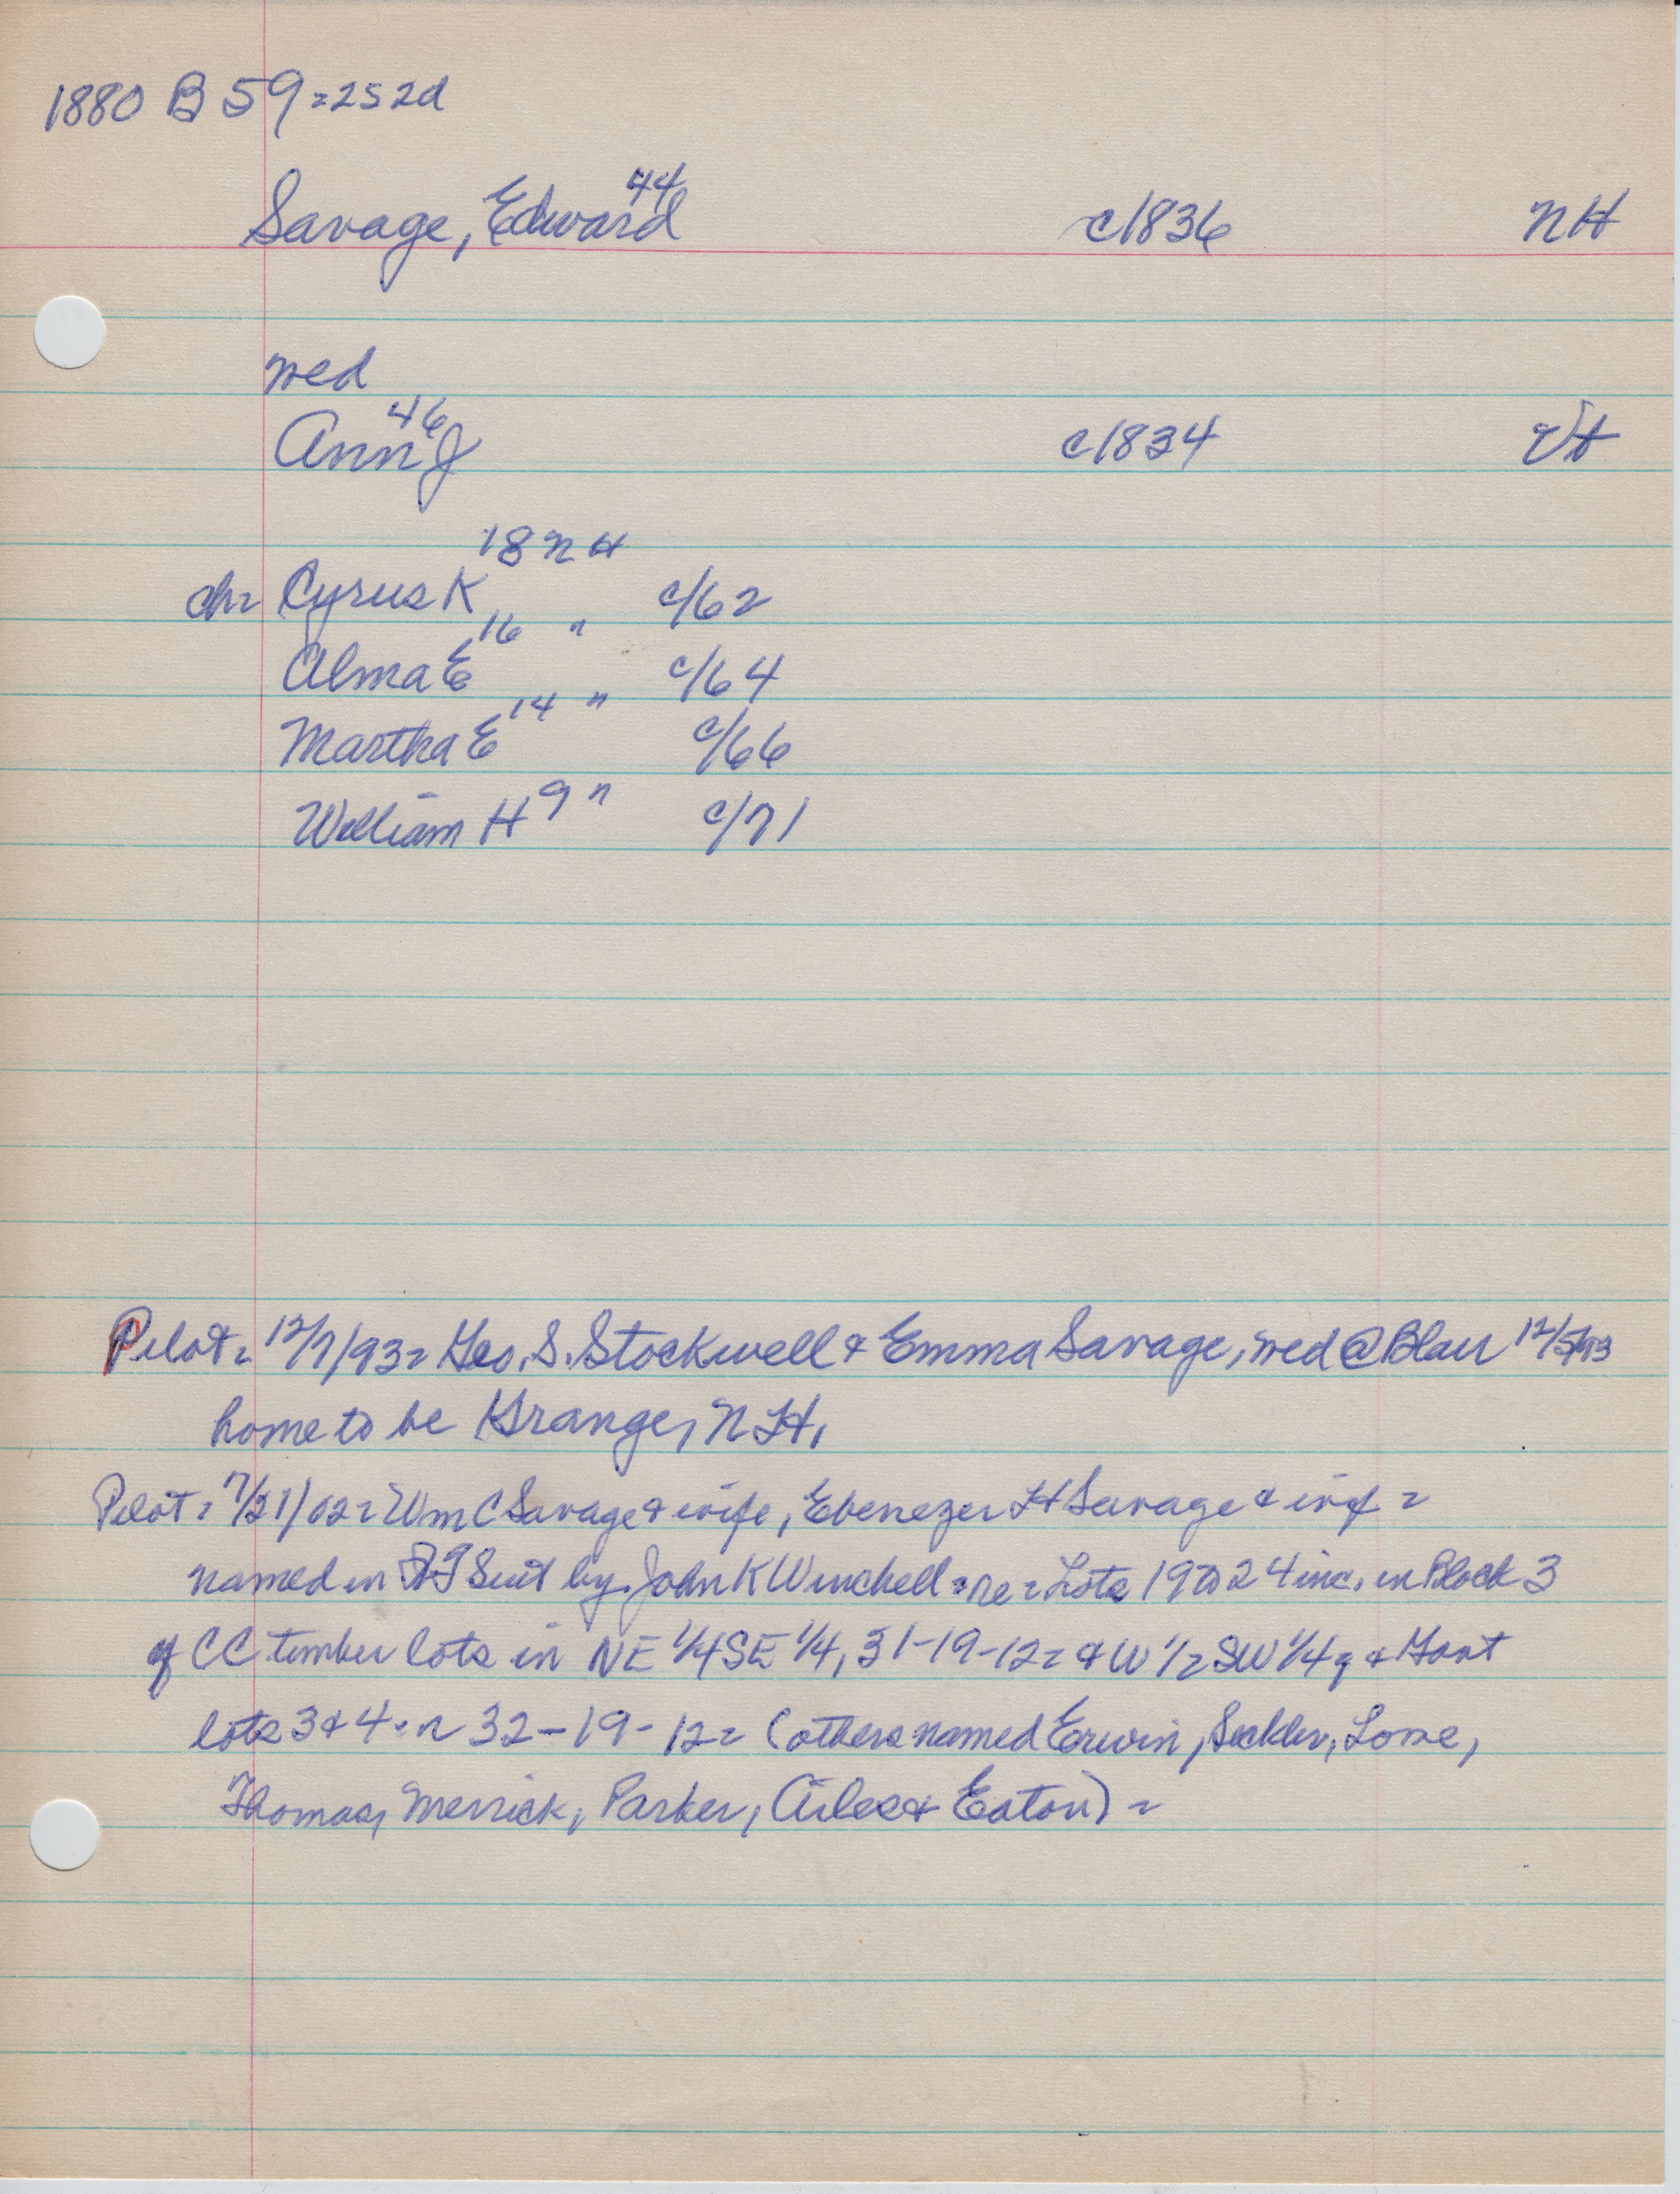 1880 B 59=252d
44
Savage, Edward c1836 NH
wed
46
Ann J c1834 Vt
18 NH
ch= Cyrus K c/62
16 "
Alma E c/64
14 "
Martha E c/66
William H 9 " c/71
Pilot= 12/7/93= Geo. S. Stockwell & Emma Savage, wed @ Blair 12/5/93
home to be Grange, NH.
Pilot= 7/21/02= Wm C Savage & wife, Ebenezer H Savage & wif =
named in QT Suit by John K Winchell = re = Lots 19 to 24 inc. in Block 3
of CC timber lots in NE 1/4 SE 1/4, 31-19-12= & W 1/2 SW 1/4 & Govt
lots 3 & 4 in 32-19-12= (others named Erwin,
Thomas, Merrick, Parker, & Eaton) =